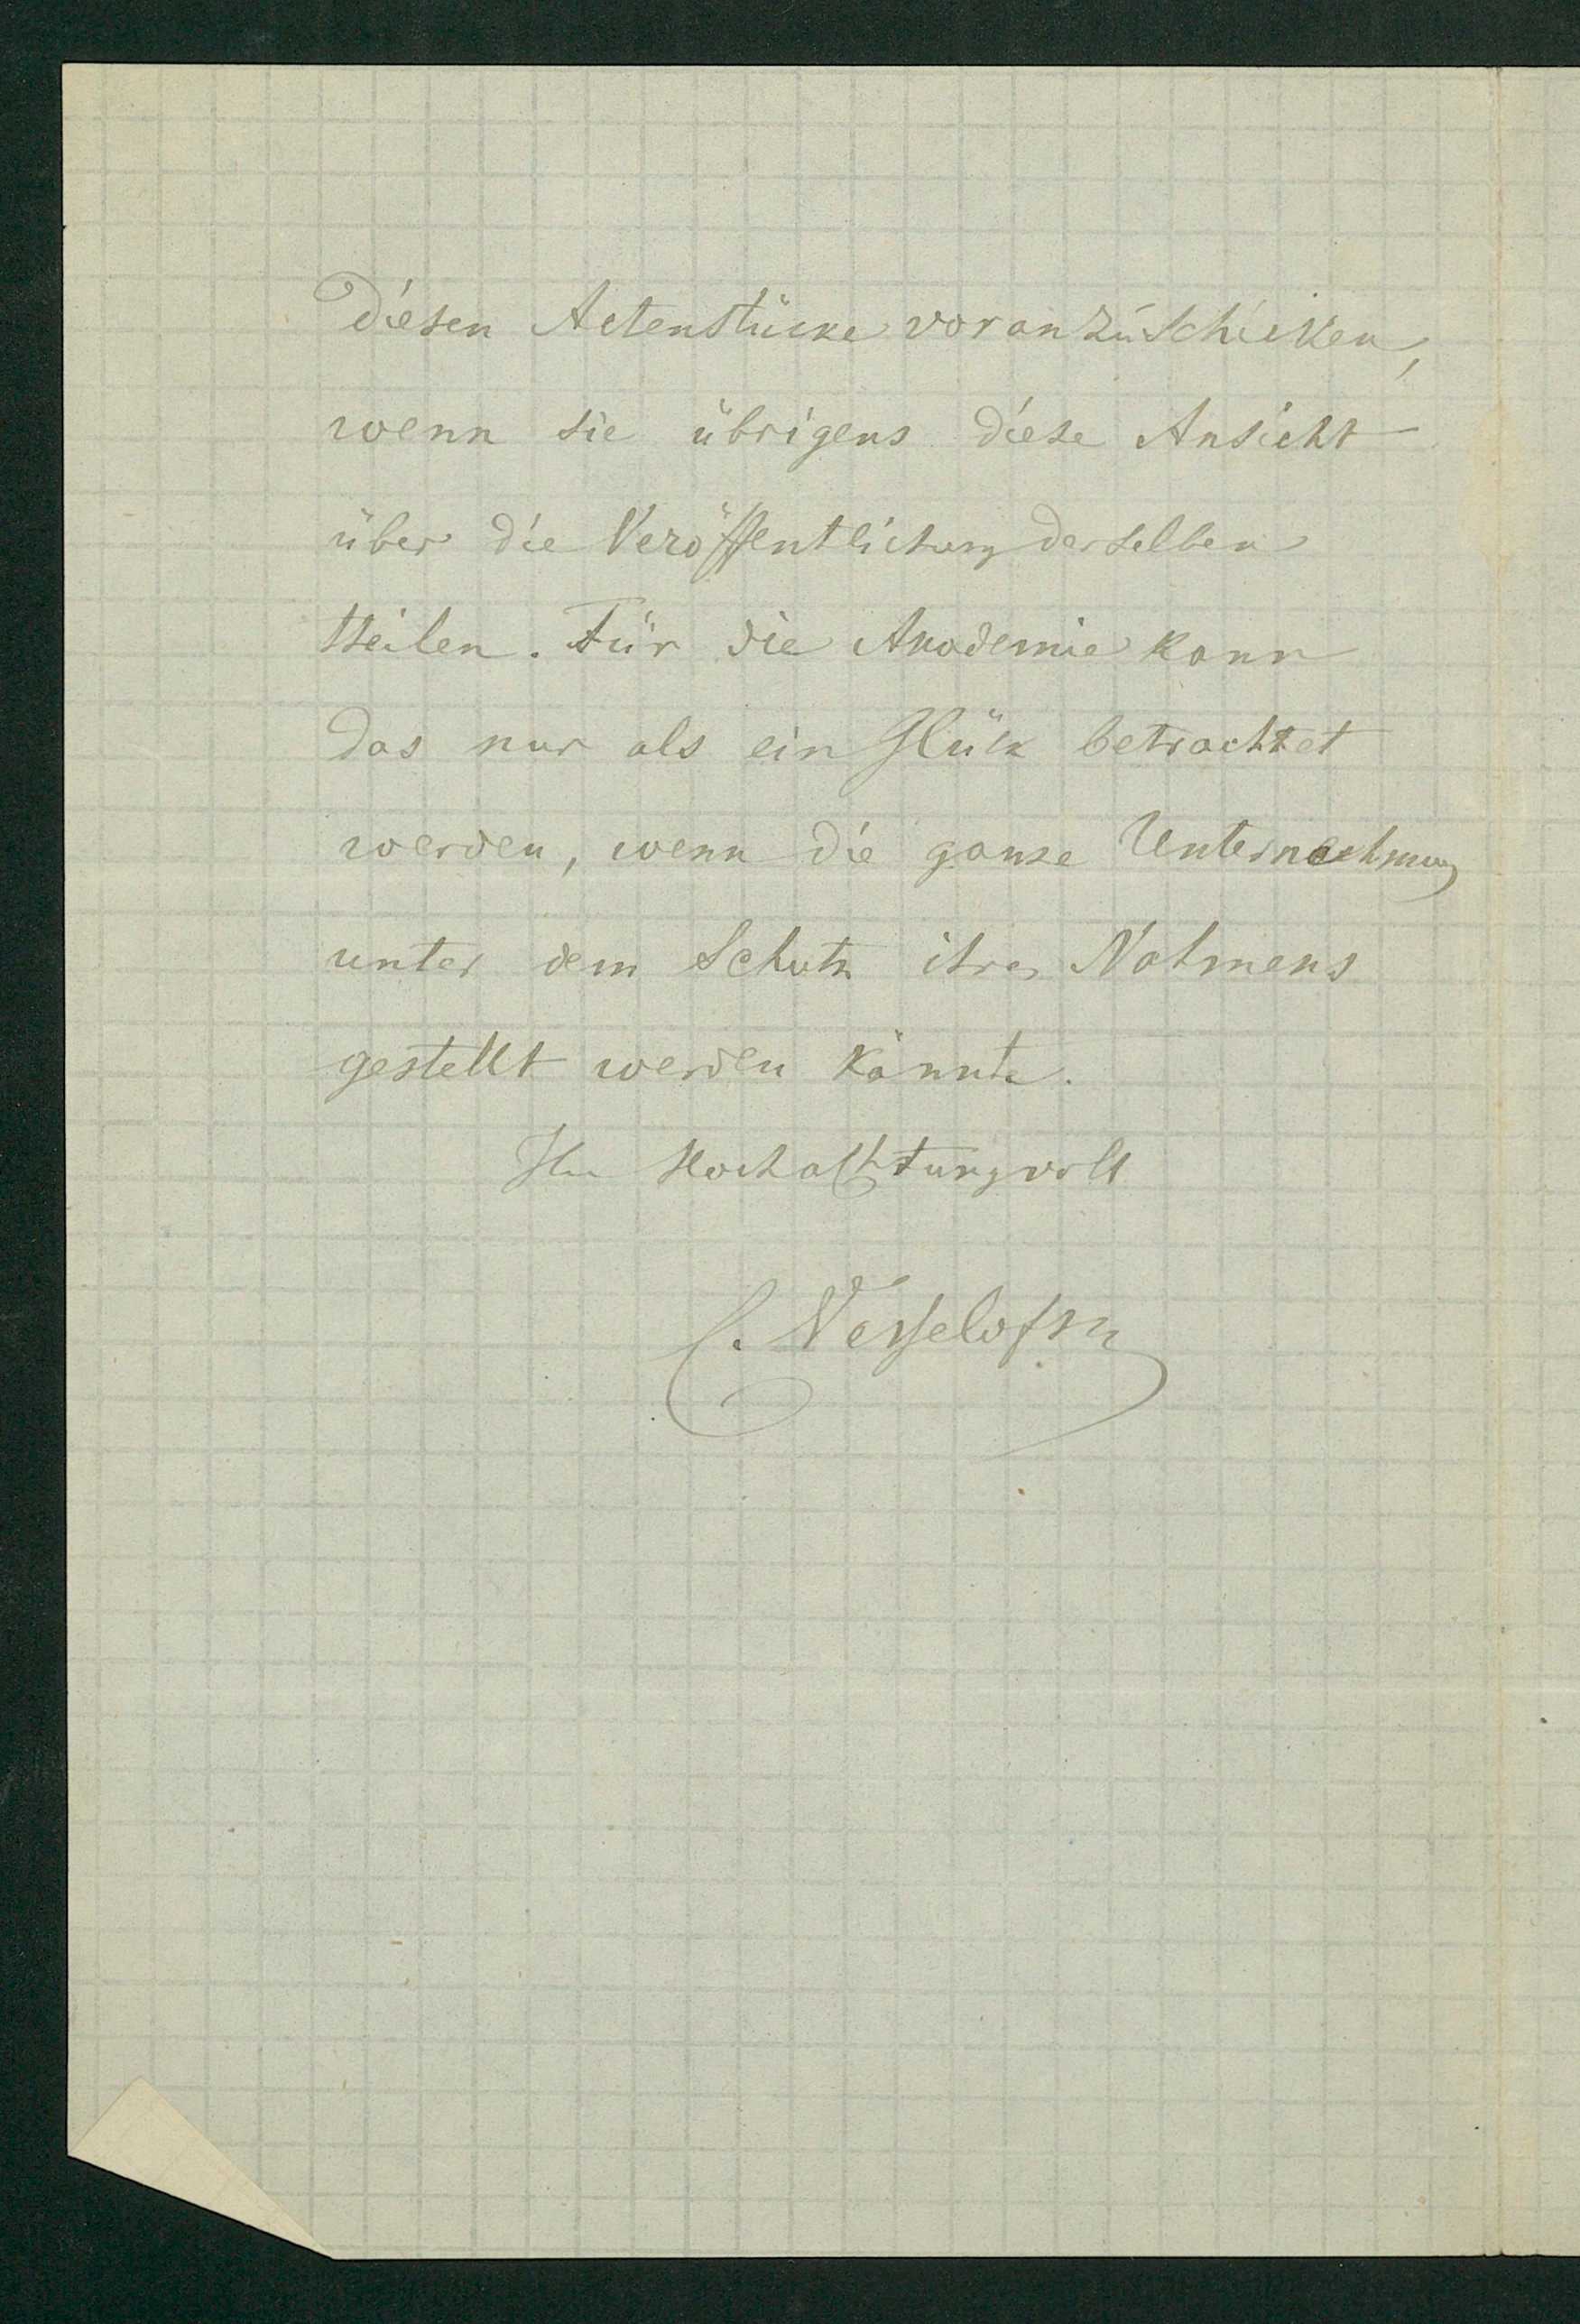 diesen Actenstücke voranzuschicken,
wenn sie übrigens diese Ansicht
über die Veröffentlichung derselben
theilen. Für die Akademie kann
das nur als ein Glück betrachtet
werden, wenn die ganze Unternehmung
unter dem Schutz ihres Nahmens
gestellt werden könnte.
Ihr Hochachtungsvoll
C. Vesselofsky